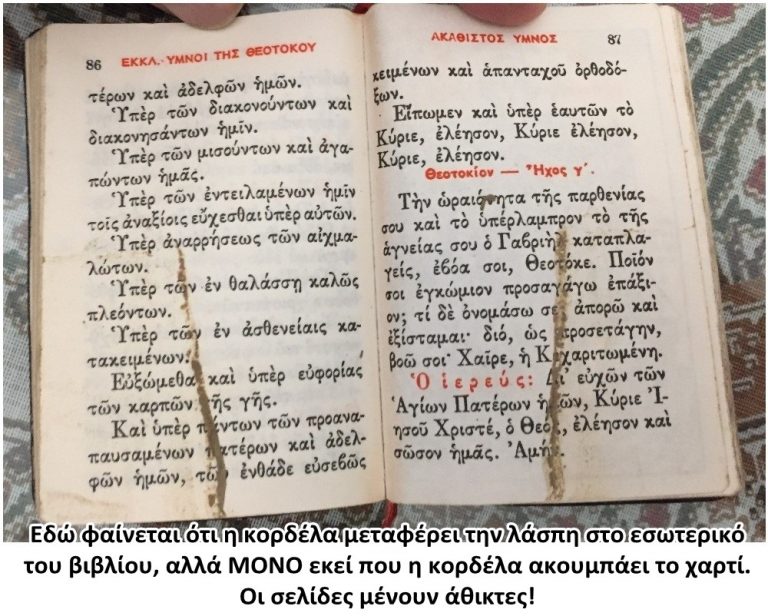 86 ΕΚΚΛ. ΥΜΝΟΙ ΤΗΣ ΘΕΟΤΟΚΟΥ
τέρων καὶ ἀδελφῶν ἡμῶν.
Ὑπὲρ τῶν διακονούντων καὶ
διακονησάντων ἡμῖν.
Ὑπὲρ τῶν μισούντων καὶ ἀγα-
πώντων ἡμᾶς.
Ὑπὲρ τῶν ἐντειλαμένων ἡμῖν
τοῖς ἀναξίοις εὔχεσθαι ὑπὲρ αὐτῶν.
Ὑπὲρ ἀναρρήσεως τῶν αἰχμα-
λώτων.
Ὑπὲρ τῶν ἐν θαλάσσῃ καλῶς
πλεόντων.
Ὑπὲρ τῶν ἐν ἀσθενείαις κα-
τακειμένων.
Εὐξώμεθα καὶ ὑπὲρ εὐφορίας
τῶν καρπῶν τῆς γῆς.
Καὶ ὑπὲρ πάντων τῶν προανα-
παυσαμένων πατέρων καὶ ἀδελ-
φῶν ἡμῶν, τῶν ἐνθάδε εὐσεβῶς
ΑΚΑΘΙΣΤΟΣ ΥΜΝΟΣ 87
κειμένων καὶ ἁπανταχοῦ ὀρθοδό-
ξων.
Εἴπωμεν καὶ ὑπὲρ ἑαυτῶν τὸ
Κύριε, ἐλέησον, Κύριε ἐλέησον,
Κύριε, ἐλέησον.
Θεοτοκίον — Ἦχος γ΄.
Τὴν ὡραιότητα τῆς παρθενίας
σου καὶ τὸ ὑπέρλαμπρον τὸ τῆς
ἁγνείας σου ὁ Γαβριὴλ καταπλα-
γείς, ἐβόα σοι, Θεοτόκε. Ποῖόν
σοι ἐγκώμιον προσαγάγω ἐπάξι-
ον; τί δὲ ὀνομάσω σε; ἀπορῶ καὶ
ἐξίσταμαι· διό, ὡς προσετάγην,
βοῶ σοι· Χαῖρε, ἡ Κεχαριτωμένη.
Ὁ ἱερεύς: Δι' εὐχῶν τῶν
Ἁγίων Πατέρων ἡμῶν, Κύριε Ἰ-
ησοῦ Χριστέ, ὁ Θεός, ἐλέησον καὶ
σῶσον ἡμᾶς. Ἀμήν.
Εδώ φαίνεται ότι η κορδέλα μεταφέρει την λάσπη στο εσωτερικό
του βιβλίου, αλλά ΜΟΝΟ εκεί που η κορδέλα ακουμπάει το χαρτί.
Οι σελίδες μένουν άθικτες!